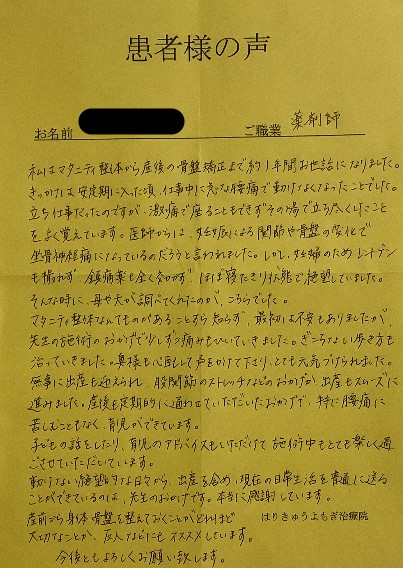 患者様の声
お名前 ご職業 薬剤師
私はマタニティ整体から産後の骨盤矯正まで約1年間お世話になりました。
きっかけは安定期に入った頃、仕事中に急な腰痛で動けなくなったことでした。
立ち仕事だったのですが、激痛で座ることもできずその場で立ち尽くしたこと
をよく覚えています。医師からは、妊娠による関節や骨盤の変化で
坐骨神経痛になっているのだろうと言われました。しかし、妊婦のためレントゲン
も撮れず、鎮痛薬も全く効かず、ほぼ寝たきり状態で絶望していました。
そんな時に、母や夫が調べてくれたのが、こちらでした。
マタニティ整体なんてものがあることすら知らず、最初は不安もありましたが、
先生の施術のおかげで少しずつ痛みもひいていきました。ぎこちない歩き方も
治っていきました。奥様も心配して声をかけて下さり、とても元気づけられました。
無事に出産も迎えられ、股関節のストレッチなどのおかげか、出産もスムーズに
進みました。産後も定期的に通わせていただいたおかげで、特に腰痛に
苦しむこともなく、育児ができています。
子どもの話をしたり、育児のアドバイスもいただけて施術中もとても楽しく過
ごさせていただいています。
動けない絶望的な日々から、出産を含め、現在の日常生活を普通に送る
ことができているのは、先生のおかげです。本当に感謝しています。
産前から身体、骨盤を整えておくことがどれほど
大切なことか、友人などにもオススメしています。
今後ともよろしくお願い致します。
はりきゅうよもぎ治療院